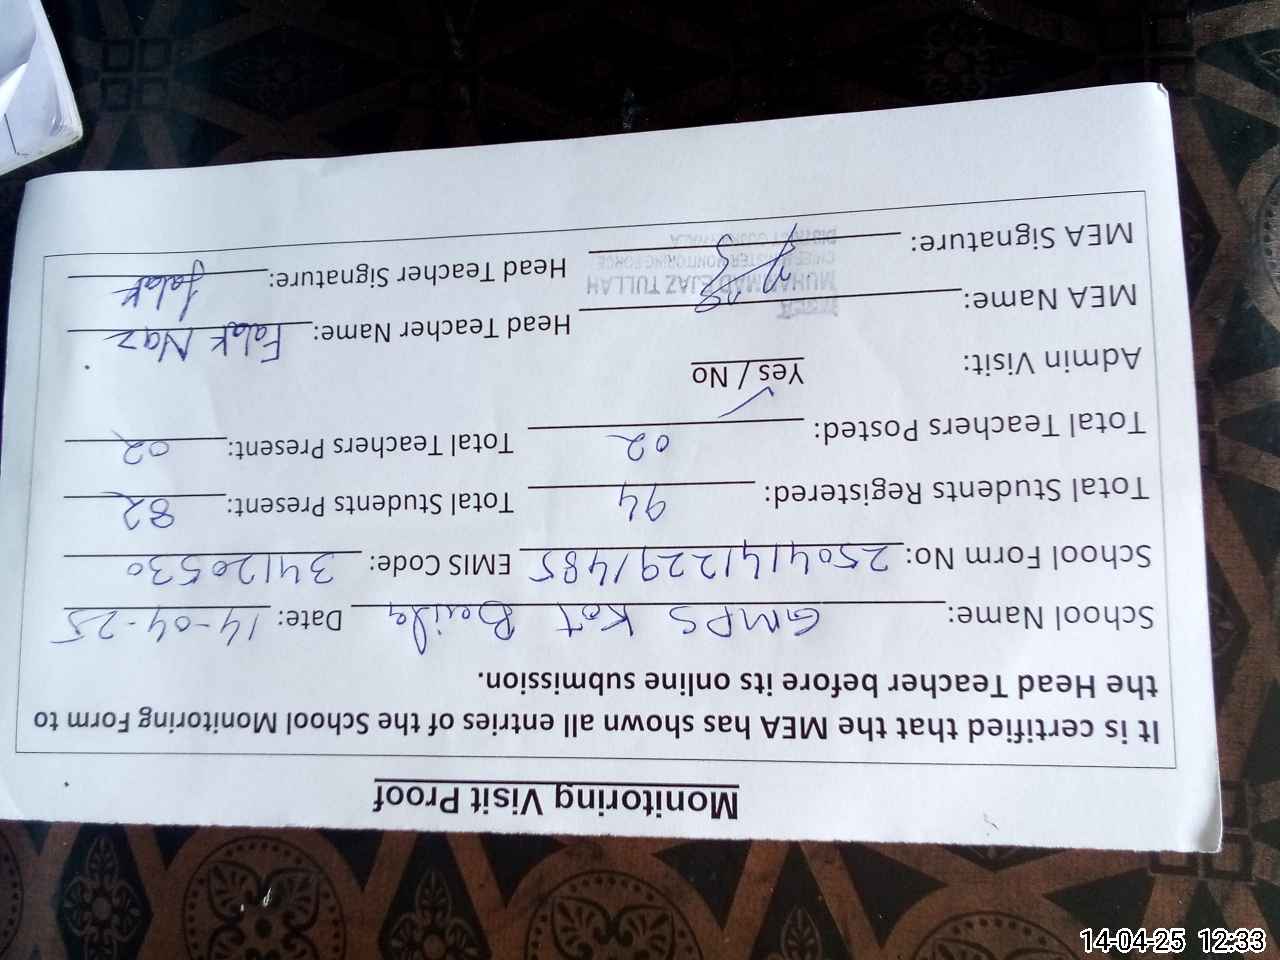 Monitoring Visit Proof
It is certified that the MEA has shown all entries of the School Monitoring Form to
the Head Teacher before its online submission.
School Name: GMPS Kot Date: 14-04-25
School Form No: 25041412291485 EMIS Code: 34120530
Total Students Registered: 94 Total Students Present: 82
Total Teachers Posted: 02 Total Teachers Present: 02
Admin Visit: Yes / No
MEA Name: Head Teacher Name: Falak Naz
MUHAMMAD EJAZ TULLAH
MEA Signature: Head Teacher Signature: falak
14-04-25 12:33